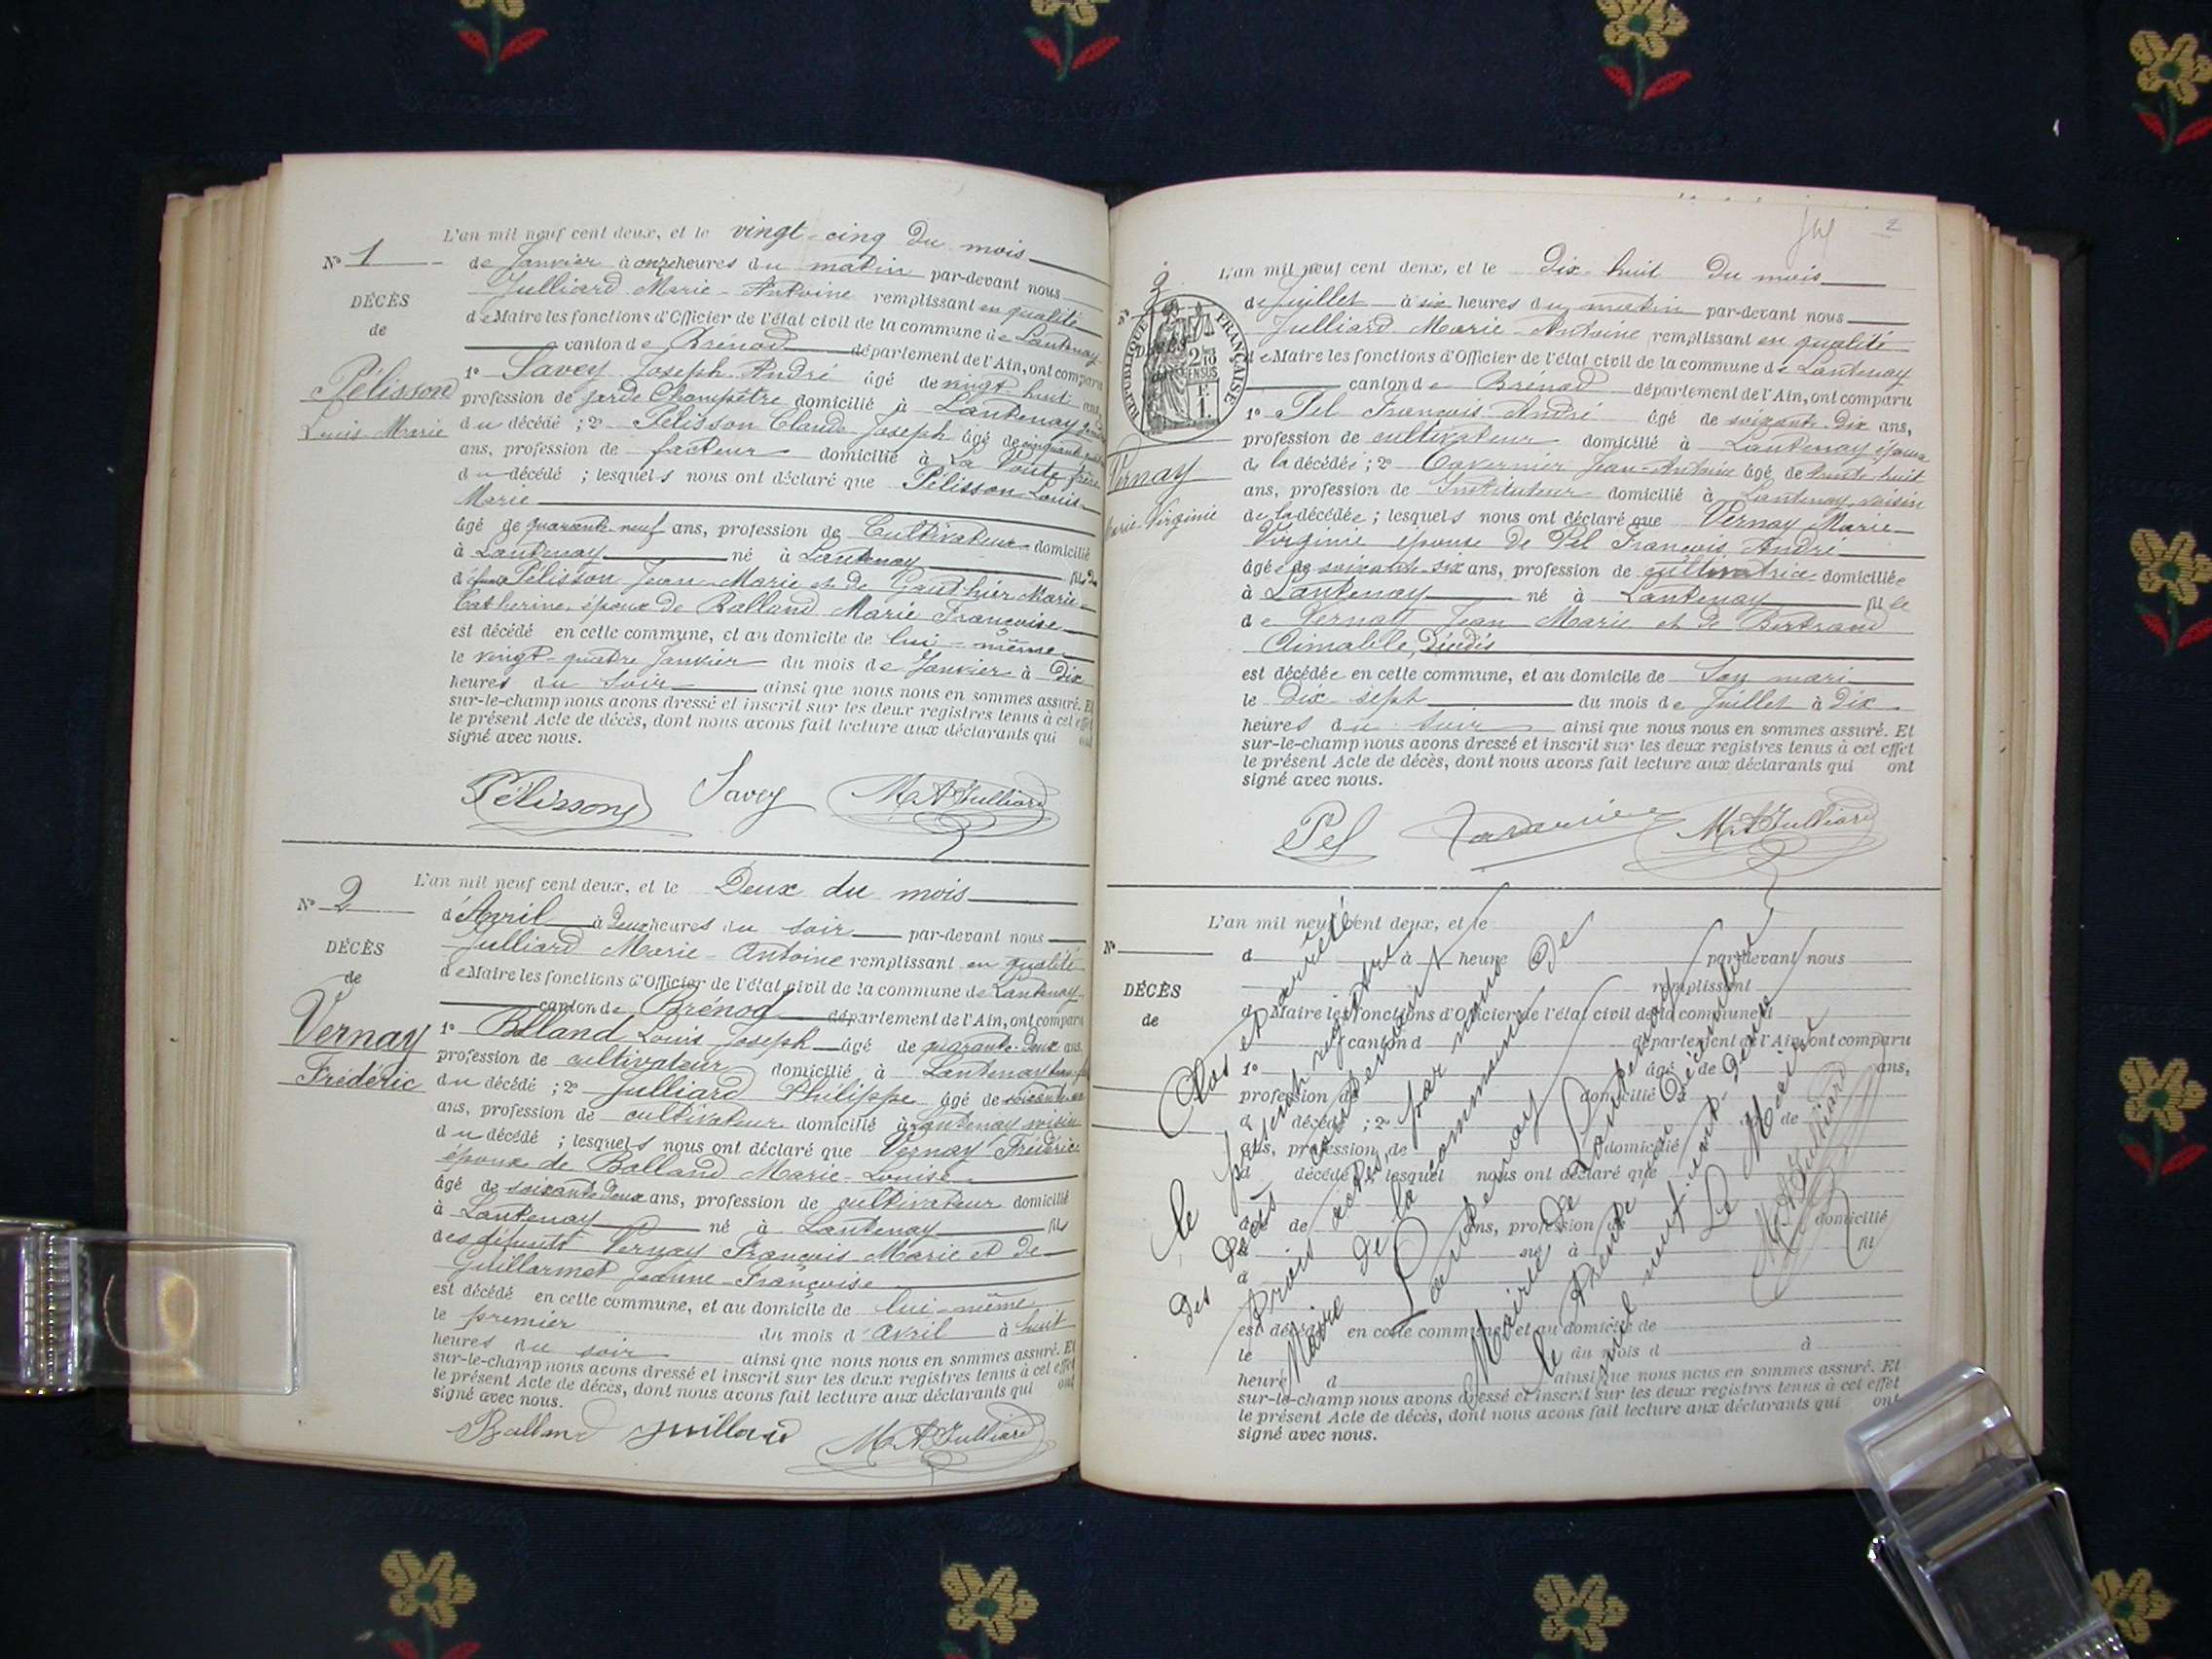 L'an mil neuf cent deux, et le vingt-cinq du mois
N° 1
de Janvier à onze heures du matin par-devant nous
DÉCÈS
Julliard Marie-Antoine remplissant en qualité
de
de Maire les fonctions d'Officier de l'état civil de la commune de Lantenay
canton de Brénod département de l'Ain, ont comparu
Pélisson
1° Savey Joseph André âgé de vingt huit ans,
Louis Marie
profession de garde Champêtre domicilié à Lantenay
du décédé ; 2° Pélisson Claude Joseph âgé de cinquante
ans, profession de facteur domicilié à La Voute frère
du décédé ; lesquels nous ont déclaré que Pélisson Louis
Marie
âgé de quarante-neuf ans, profession de Cultivateur domicilié
à Lantenay né à Lantenay fils
Pélisson Jean-Marie et de Gauthier Marie
Catherine, époux de Balland Marie Françoise
est décédé en cette commune, et au domicile de lui-même
le vingt-quatre Janvier du mois de Janvier à Dix
heures du soir ainsi que nous nous en sommes assuré. Et
sur-le-champ nous avons dressé et inscrit sur les deux registres tenus à cet effet
le présent Acte de décès, dont nous avons fait lecture aux déclarants qui ont
signé avec nous.
Pélisson Savey M A Julliard
L'an mil neuf cent deux, et le Deux du mois
N° 2
d'Avril à deux heures du soir par-devant nous
DÉCÈS
Julliard Marie-Antoine remplissant en qualité
de
de Maire les fonctions d'Officier de l'état civil de la commune de Lantenay
canton de Brénod département de l'Ain, ont comparu
Vernay
1° Balland Louis Joseph âgé de quarante-deux ans
Frédéric
profession de cultivateur domicilié à Lantenay
du décédé ; 2° Julliard Philippe âgé de
ans, profession de cultivateur domicilié à Lantenay voisin
du décédé ; lesquels nous ont déclaré que Vernay Frédéric
époux de Balland Marie-Louise
âgé de soixante deux ans, profession de cultivateur domicilié
à Lantenay né à Lantenay fils
des défunts Vernay François Marie et de
Guillermet Jeanne-Françoise
est décédé en cette commune, et au domicile de lui-même
le premier du mois d'avril à huit
heures du soir ainsi que nous nous en sommes assuré. Et
sur-le-champ nous avons dressé et inscrit sur les deux registres tenus à cet effet
le présent Acte de décès, dont nous avons fait lecture aux déclarants qui ont
signé avec nous.
Balland Juilliard M A Julliard
2
L'an mil neuf cent deux, et le Dix-huit du mois
N° 3
de Juillet à six heures du matin par-devant nous
Julliard Marie-Antoine remplissant en qualité
RÉPUBLIQUE FRANÇAISE
de Maire les fonctions d'Officier de l'état civil de la commune de Lantenay
canton de Brénod département de l'Ain, ont comparu
1° Pel François André âgé de soixante-Dix ans,
profession de cultivateur domicilié à Lantenay époux
Vernay
de la décédée ; 2° Tavernier Jean-Antoine âgé de trente-huit
ans, profession de Instituteur domicilié à Lantenay voisin
Marie Virginie
de la décédée ; lesquels nous ont déclaré que Vernay Marie
Virginie épouse de Pel François André
âgée de soixante-six ans, profession de cultivatrice domiciliée
à Lantenay né à Lantenay fille
de Vernay Jean Marie et de Bertrand
Aimable, Décédés
est décédée en cette commune, et au domicile de Son mari
le Dix-sept du mois de Juillet à Dix
heures du soir ainsi que nous nous en sommes assuré. Et
sur-le-champ nous avons dressé et inscrit sur les deux registres tenus à cet effet
le présent Acte de décès, dont nous avons fait lecture aux déclarants qui ont
signé avec nous.
Pel Tavernier M A Julliard
L'an mil neuf cent deux, et le
N°
d à heure par-devant nous
DÉCÈS
remplissant
de
d Maire les fonctions d'Officier de l'état civil de la commune d
canton d département de l'Ain, ont comparu
1° âgé de ans,
profession de domicilié à
d décédé ; 2° âgé de
ans, profession de domicilié
d décédé ; lesquel nous ont déclaré que
âgé de ans, profession de domicilié
à né à fil
d
est décédé en cette commune, et au domicile de
le du mois d à
heure d ainsi que nous nous en sommes assuré. Et
sur-le-champ nous avons dressé et inscrit sur les deux registres tenus à cet effet
le présent Acte de décès, dont nous avons fait lecture aux déclarants qui ont
signé avec nous.
Clos et arrêté
le présent registre
des Décès contenant
trois actes par nous
Maire de la commune de
Lantenay
Mairie de Lantenay
le trente-un Décembre
mil neuf-cent-deux
Le Maire
M A Julliard